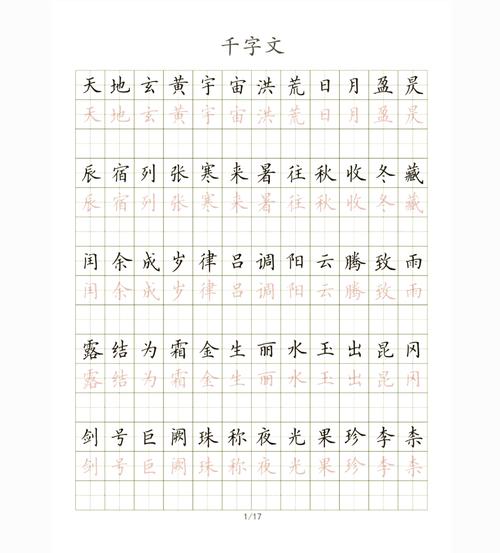 千字文
天地玄黄宇宙洪荒日月盈昃
天地玄黄宇宙洪荒日月盈昃
辰宿列张寒来暑往秋收冬藏
辰宿列张寒来暑往秋收冬藏
闰余成岁律吕调阳云腾致雨
闰余成岁律吕调阳云腾致雨
露结为霜金生丽水玉出昆冈
露结为霜金生丽水玉出昆冈
剑号巨阙珠称夜光果珍李柰
剑号巨阙珠称夜光果珍李柰
1/17